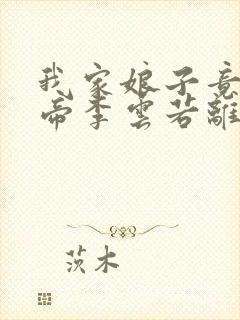 我家娘子竟
帝李雲若離
茨木